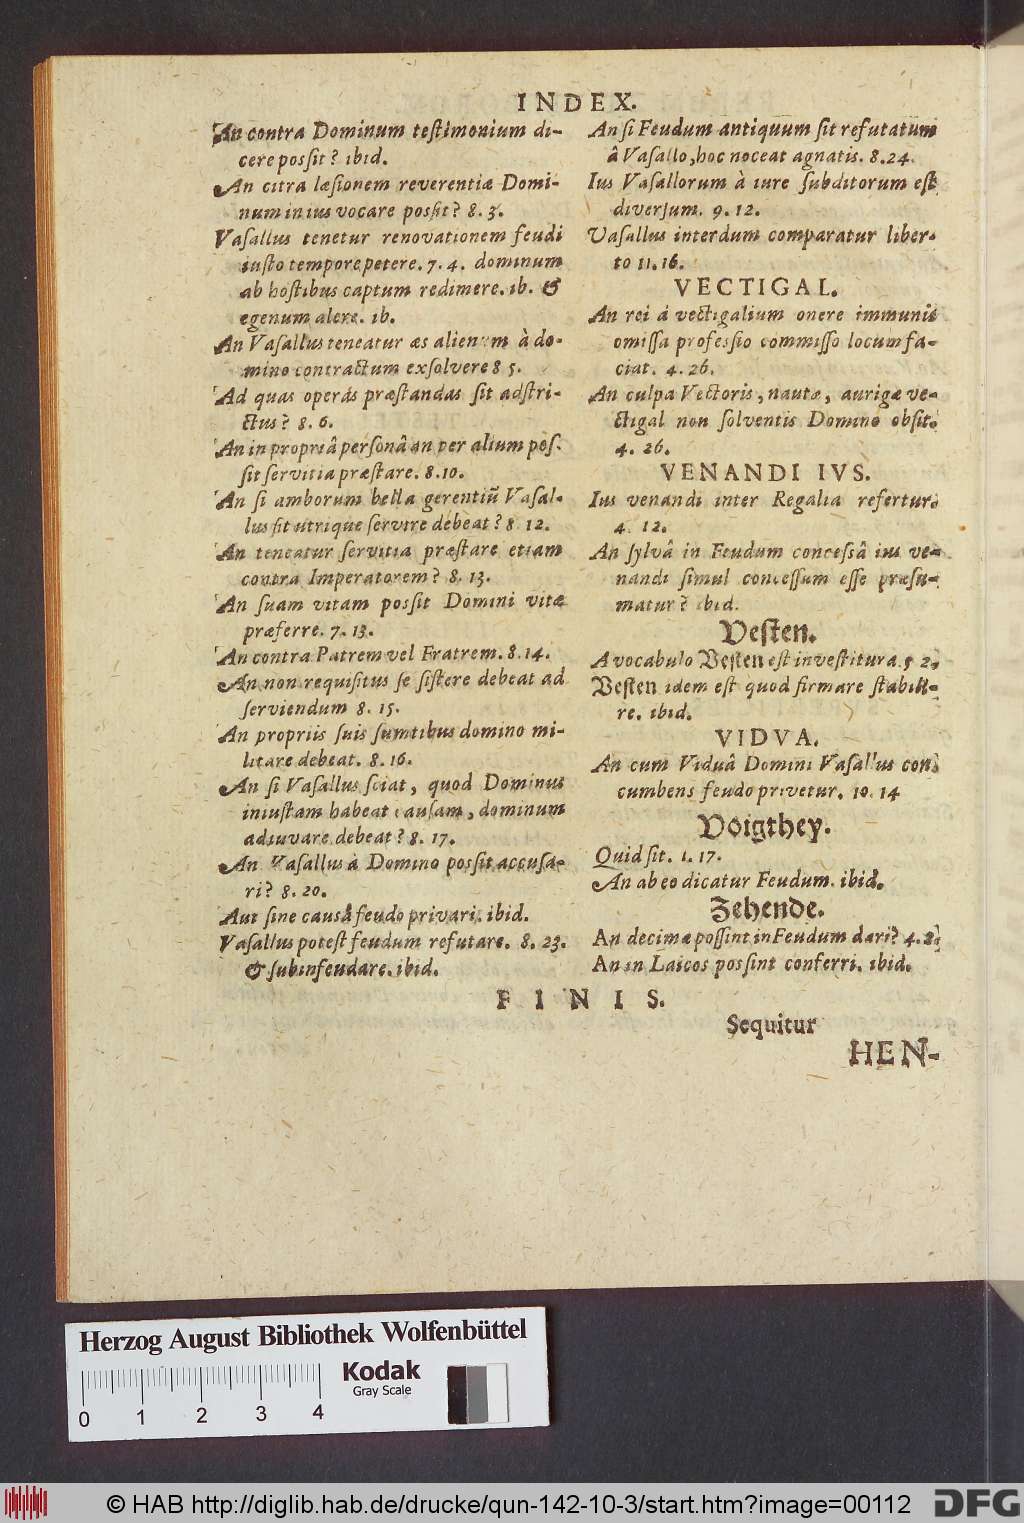 INDEX.
An contra Dominum testimonium di-
cere possit? ibid.
An citra læsionem reverentiæ Domi-
num in ius vocare possit? 8. 3.
Vasallus tenetur renovationem feudi
iusto tempore petere. 7. 4. dominum
ab hostibus captum redimere. ib. &
egenum alere. ib.
An Vasallus teneatur æs alienum à do-
mino contractum exsolvere 8 5.
Ad quas operas præstandas sit adstri-
ctus? 8. 6.
An in propriâ personâ an per alium pos-
sit servitia præstare. 8. 10.
An si amborum bella gerentiũ Vasal-
lus sit utrique servire debeat? 8. 12.
An teneatur servitia præstare etiam
contra Imperatorem? 8. 13.
An suam vitam possit Domini vitæ
præferre. 7. 13.
An contra Patrem vel Fratrem. 8. 14.
An non requisitus se sistere debeat ad
serviendum 8. 15.
An propriis suis sumtibus domino mi-
litare debeat. 8. 16.
An si Vasallus sciat, quod Dominus
iniustam habeat causam, dominum
adiuvare debeat? 8. 17.
An Vasallus à Domino possit accusa-
ri? 8. 20.
Aut sine causâ feudo privari. ibid.
Vasallus potest feudum refutare. 8. 23.
& subinfeudare. ibid.
An si Feudum antiquum sit refutatum
â Vasallo, hoc noceat agnatis. 8. 24.
Ius Vasallorum à iure subditorum est
diversum. 9. 12.
Vasallus interdum comparatur liber-
to 11. 16.
VECTIGAL.
An rei á vectigalium onere immunis
omissa professio commisso locum fa-
ciat. 4. 26.
An culpa Vectoris, nautæ, aurigæ ve-
ctigal non solventis Domino obsit.
4. 26.
VENANDI IVS.
Ius venandi inter Regalia refertur.
4. 12.
An sylvâ in Feudum concessâ ius ve-
nandi simul concessum esse præsu-
matur? ibid.
Vesten.
A vocabulo Vesten est investitura. 5 2.
Vesten idem est quod firmare stabili-
re. ibid.
VIDVA.
An cum Viduâ Domini Vasallus con-
cumbens feudo privetur. 10. 14
Voigthey.
Quid sit. 1. 17.
An ab eo dicatur Feudum. ibid.
Zehende.
An decimæ possint in Feudum dari? 4. 8.
An in Laicos possint conferri. ibid.
FINIS.
Sequitur
HEN-
Herzog August Bibliothek Wolfenbüttel
Kodak
Gray Scale
0 1 2 3 4
© HAB http://diglib.hab.de/drucke/qun-142-10-3/start.htm?image=00112
DFG